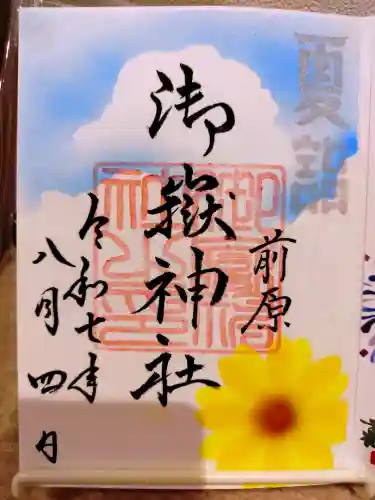 夏詣
前原
御嶽神社
令和七年
八月四日